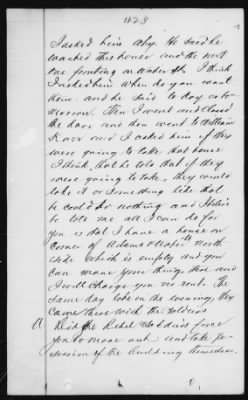 428
I asked him why. He said he
wanted this house and the next
one fronting on Water St. I think
I asked him when do you want
them and he said to day or to-
morrow. Then I went and closed
the door and then went to William
Karr and I asked him if they
were going to take that house
I think, that he told that if they
were going to take, they could
take it or something like that
he could do nothing and
he told me all I can do for
you is that I have a house on
corner of Adams & North
side which is empty and you
can move your things there and
I will charge you no rent. The
same day late in the evening, they
came there with the soldiers
Q Did the Rebel Soldiers force
you to move out and take pos-
session of the building themselves.